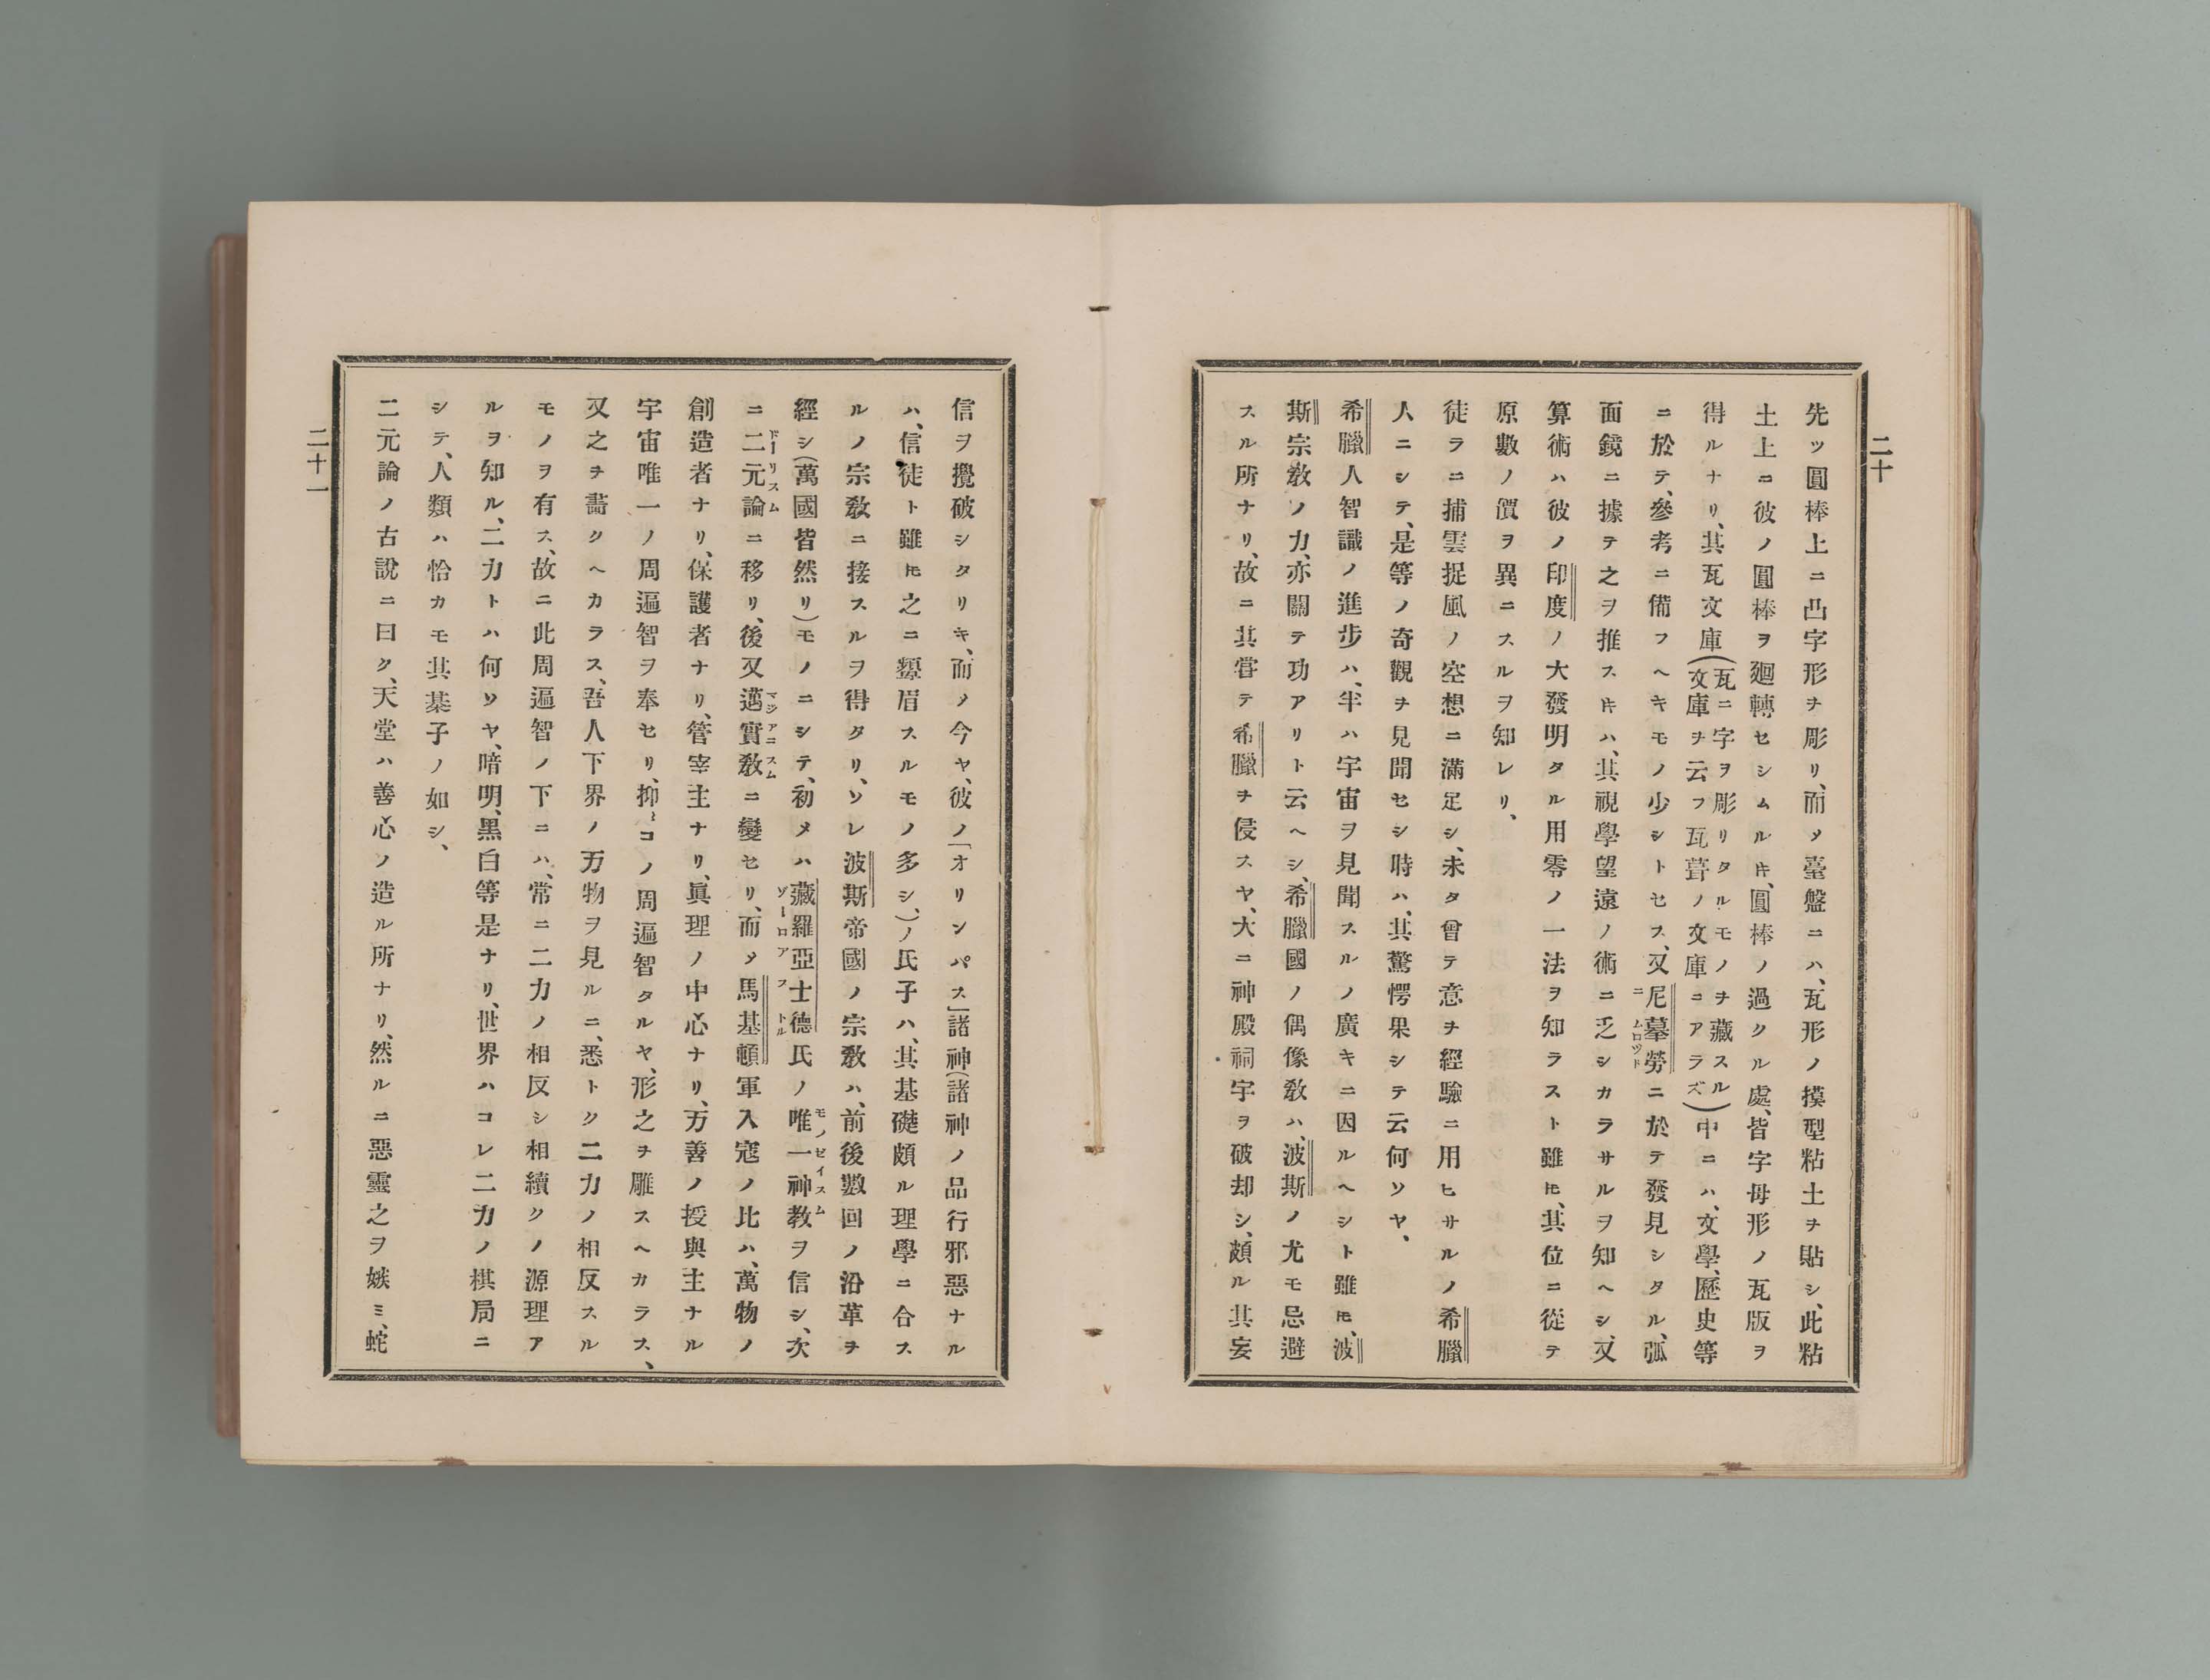 二十
先ツ圓棒上ニ凸字形ヲ彫リ、而〆臺盤ニハ、瓦形ノ摸型粘土ヲ貼シ、此粘
土上ニ彼ノ圓棒ヲ廻轉セシムルキ、圓棒ノ過クル處、皆字母形ノ瓦版ヲ
得ルナリ、其瓦文庫(瓦ニ字ヲ彫リタルモノヲ藏スル文庫ヲ云フ瓦葺ノ文庫ニアラズ)中ニハ、文學、歷史等
ニ於テ、參考ニ備フヘキモノ少シトセス、又尼墓勞ニ於テ發見シタル、弧
ニムロツド
面鏡ニ據テ之ヲ推スキハ、其視學望遠ノ術ニ乏シカラサルヲ知ヘシ、又
算術ハ彼ノ印度ノ大發明タル用零ノ一法ヲ知ラスト雖𪜈、其位ニ從テ
原數ノ價ヲ異ニスルヲ知レリ、
徒ラニ捕雲捉風ノ空想ニ滿足シ、未タ曾テ意ヲ經驗ニ用ヒサルノ希臘
人ニシテ、是等ノ奇觀ヲ見聞セシ時ハ、其驚愕果シテ云何ソヤ、
希臘人智識ノ進步ハ、半ハ宇宙ヲ見聞スルノ廣キニ因ルヘシト雖𪜈、波
斯宗敎ノ力、亦關テ功アリト云ヘシ、希臘國ノ偶像敎ハ、波斯ノ尤モ忌避
スル所ナリ、故ニ其嘗テ希臘ヲ侵スヤ、大ニ神殿祠宇ヲ破却シ、頗ル其妄
信ヲ攪破シタリキ、而〆今ヤ、彼ノ「オリンパス」諸神(諸神ノ品行邪惡ナル
ハ、信徒ト雖𪜈之ニ顰眉スルモノ多シ、)ノ氏子ハ、其基礎頗ル理學ニ合ス
ルノ宗敎ニ接スルヲ得タリ、ソレ波斯帝國ノ宗敎ハ、前後數回ノ沿革ヲ
經シ(萬國皆然リ)モノニシテ、初メハ藏羅亞士德氏ノ唯一神敎ヲ信シ、次
ゾーロアストル
モノゼイスム
ニ二元論ニ移リ、後又邁實敎ニ變セリ、而〆馬基頓軍入寇ノ比ハ、萬物ノ
ドーリスム
マジアニスム
創造者ナリ、保護者ナリ、管宰主ナリ、眞理ノ中心ナリ、万善ノ授與主ナル
宇宙唯一ノ周遍智ヲ奉セリ、抑〻コノ周遍智タルヤ、形之ヲ雕スヘカラス、
又之ヲ畵クヘカラス、吾人下界ノ万物ヲ見ルニ、悉トク二力ノ相反スル
モノヲ有ス、故ニ此周遍智ノ下ニハ、常ニ二力ノ相反シ相續クノ源理ア
ルヲ知ル、二力トハ何ソヤ、暗明、黑白等是ナリ、世界ハコレ二力ノ棋局ニ
シテ、人類ハ恰カモ其棊子ノ如シ、
二元論ノ古說ニ曰ク、天堂ハ善心ノ造ル所ナリ、然ルニ惡靈之ヲ嫉ミ、蛇
二十一